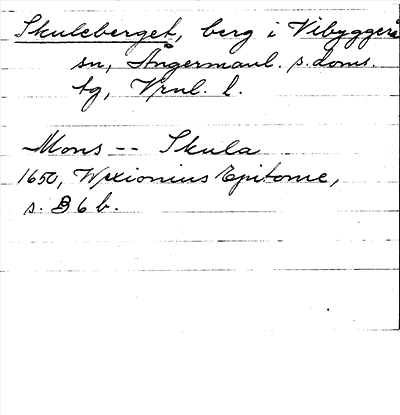 Skuleberget, berg i Vibyggerå
sn, Ångermanl. s. doms.
tg, Vrnl. l.
Mons -- Skula
1650, Wexionius Epitome,
s. B 6 b.